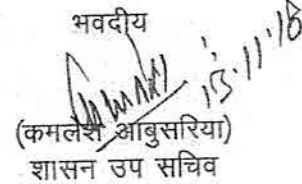 भवदीय
13.11.18
(कमलेश आबुसरिया)
शासन उप सचिव